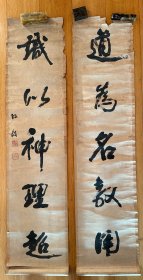 道為名教用
識以神理超